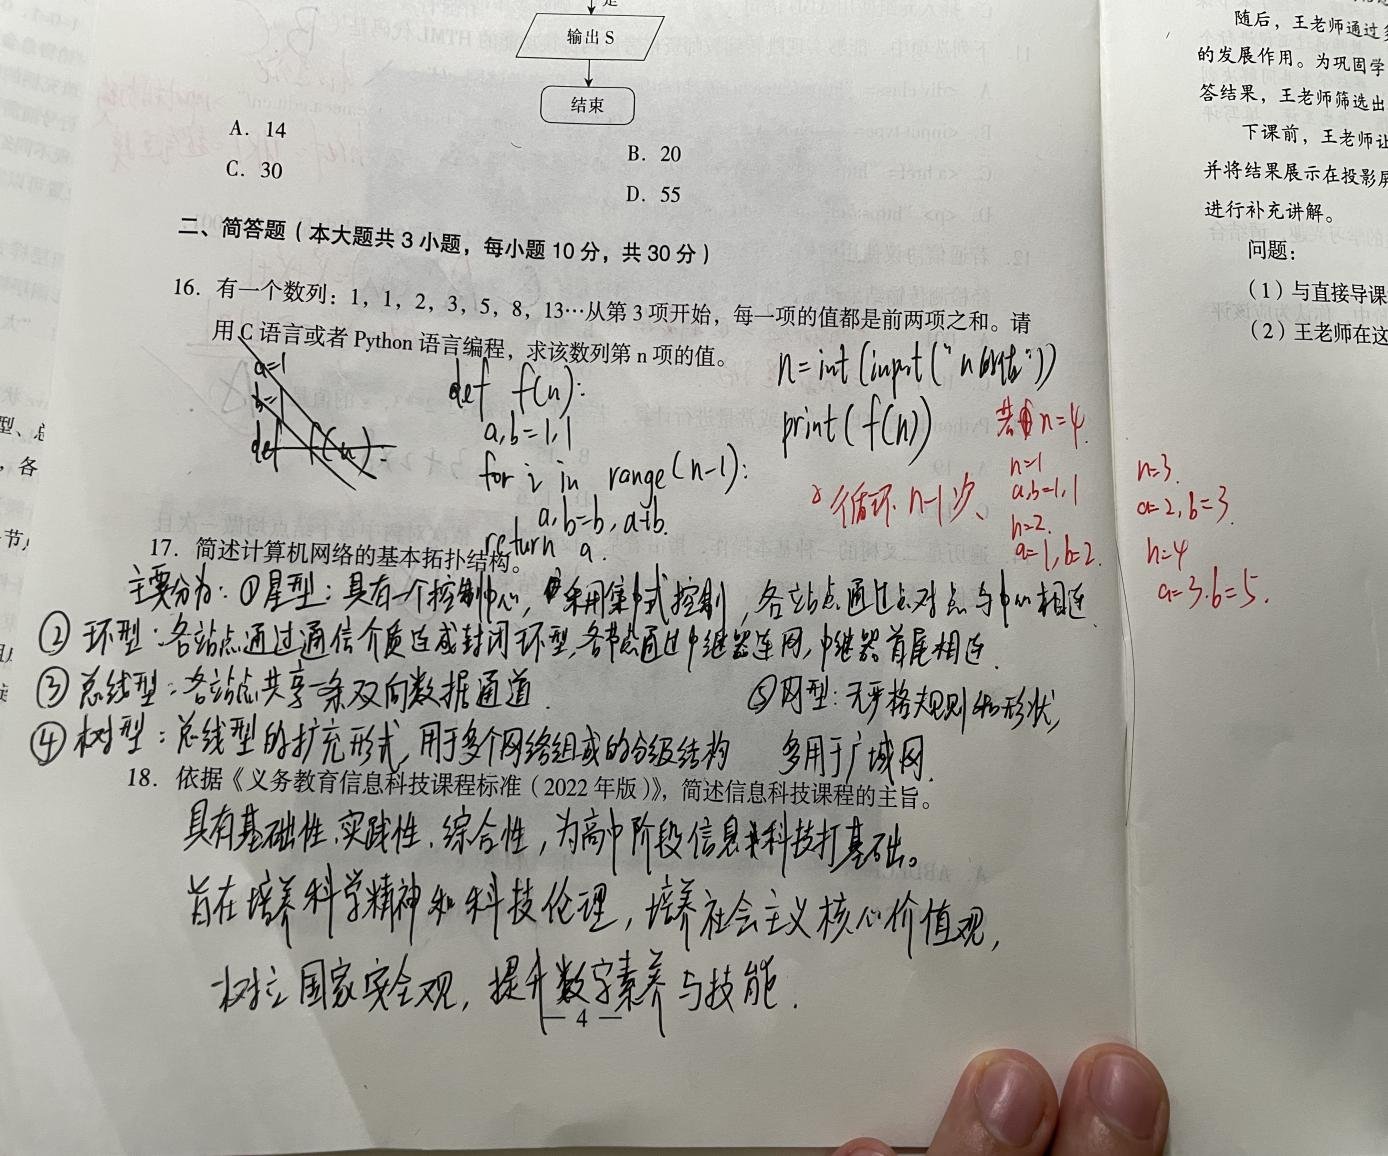 是
输出 S
结束
A. 14
B. 20
C. 30
D. 55
二、简答题（本大题共 3 小题，每小题 10 分，共 30 分）
16. 有一个数列：1，1，2，3，5，8，13…从第 3 项开始，每一项的值都是前两项之和。请
用 C 语言或者 Python 语言编程，求该数列第 n 项的值。
a=1
b=1
def f(n):
def f(n):
a,b=1,1
for i in range(n-1):
a,b=b,a+b.
return a.
n=int(input("n的值:"))
print(f(n))
循环 n-1次、
n=4.
n=1
a,b=1,1
n=2.
a=1,b=2.
n=3.
a=2,b=3.
n=4
a=3.b=5.
17. 简述计算机网络的基本拓扑结构。
主要分为：①星型：具有一个控制中心，采用集中式控制，各站点通过点对点与中心相连.
②环型：各站点通过通信介质连成封闭环型,各节点通过中继器连网,中继器首尾相连.
③总线型：各站点共享一条双向数据通道.
⑤网型：无严格规则的形状,
④树型：总线型的扩充形式,用于多个网络组成的分级结构
多用于广域网.
18. 依据《义务教育信息科技课程标准（2022 年版）》，简述信息科技课程的主旨。
具有基础性、实践性、综合性，为高中阶段信息科技打基础。
旨在培养科学精神和科技伦理，培养社会主义核心价值观，
树立国家安全观，提升数字素养与技能.
— 4 —
随后，王老师通过
的发展作用。为巩固学
答结果，王老师筛选出
下课前，王老师让
并将结果展示在投影屏
进行补充讲解。
问题：
（1）与直接导课
（2）王老师在这